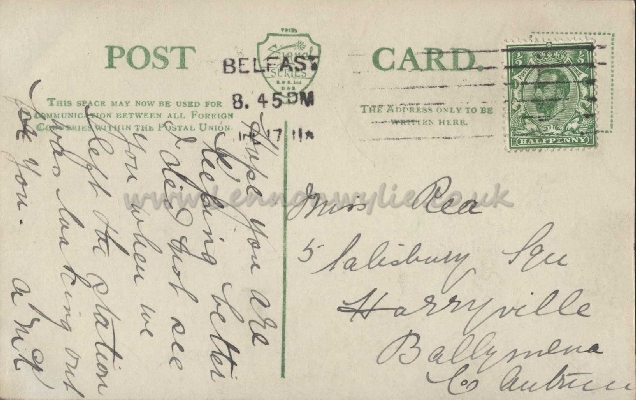 POST CARD.
THIS SPACE MAY NOW BE USED FOR
COMMUNICATION BETWEEN ALL FOREIGN
COUNTRIES WITHIN THE POSTAL UNION.
THE ADDRESS ONLY TO BE
WRITTEN HERE.
Signal
Series
BELFAST
8.45 PM
17 11
HALFPENNY
Hope you are
keeping better
I did not see
you when we
left the station
I was looking out
for you.
Miss Rea
5 Salisbury Squ
Harryville
Ballymena
Co Antrim
www.lennonwylie.co.uk